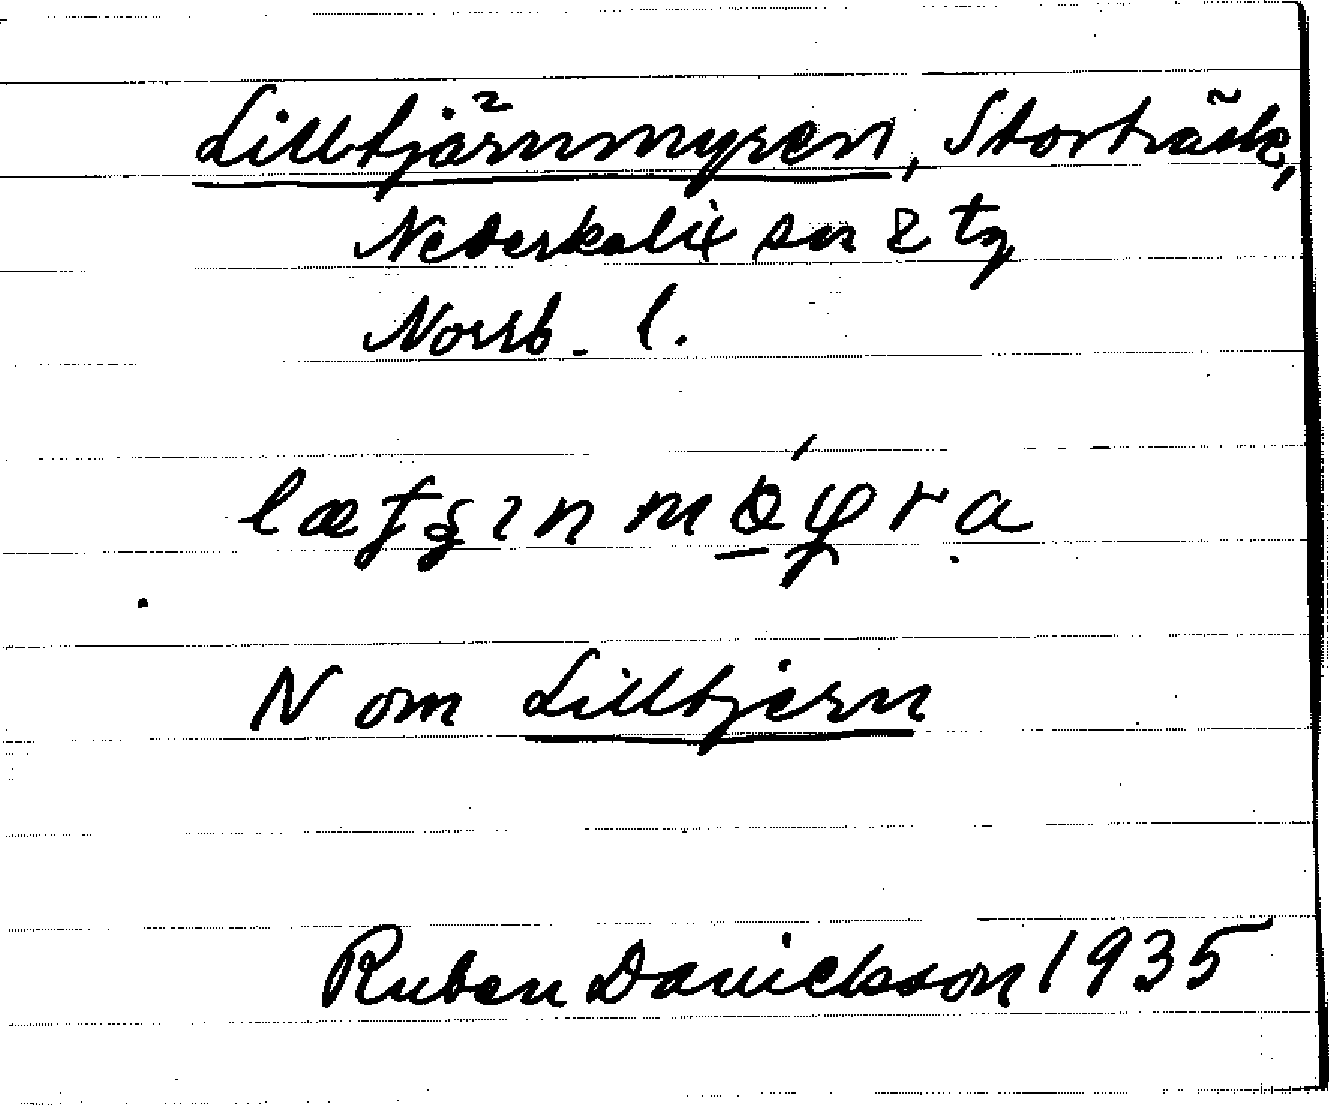 Lilltjärnmyren, Storträsk,
Nederkalix sn & tg
Norrb. l.
N om Lilltjärn
Ruben Danielsson 1935